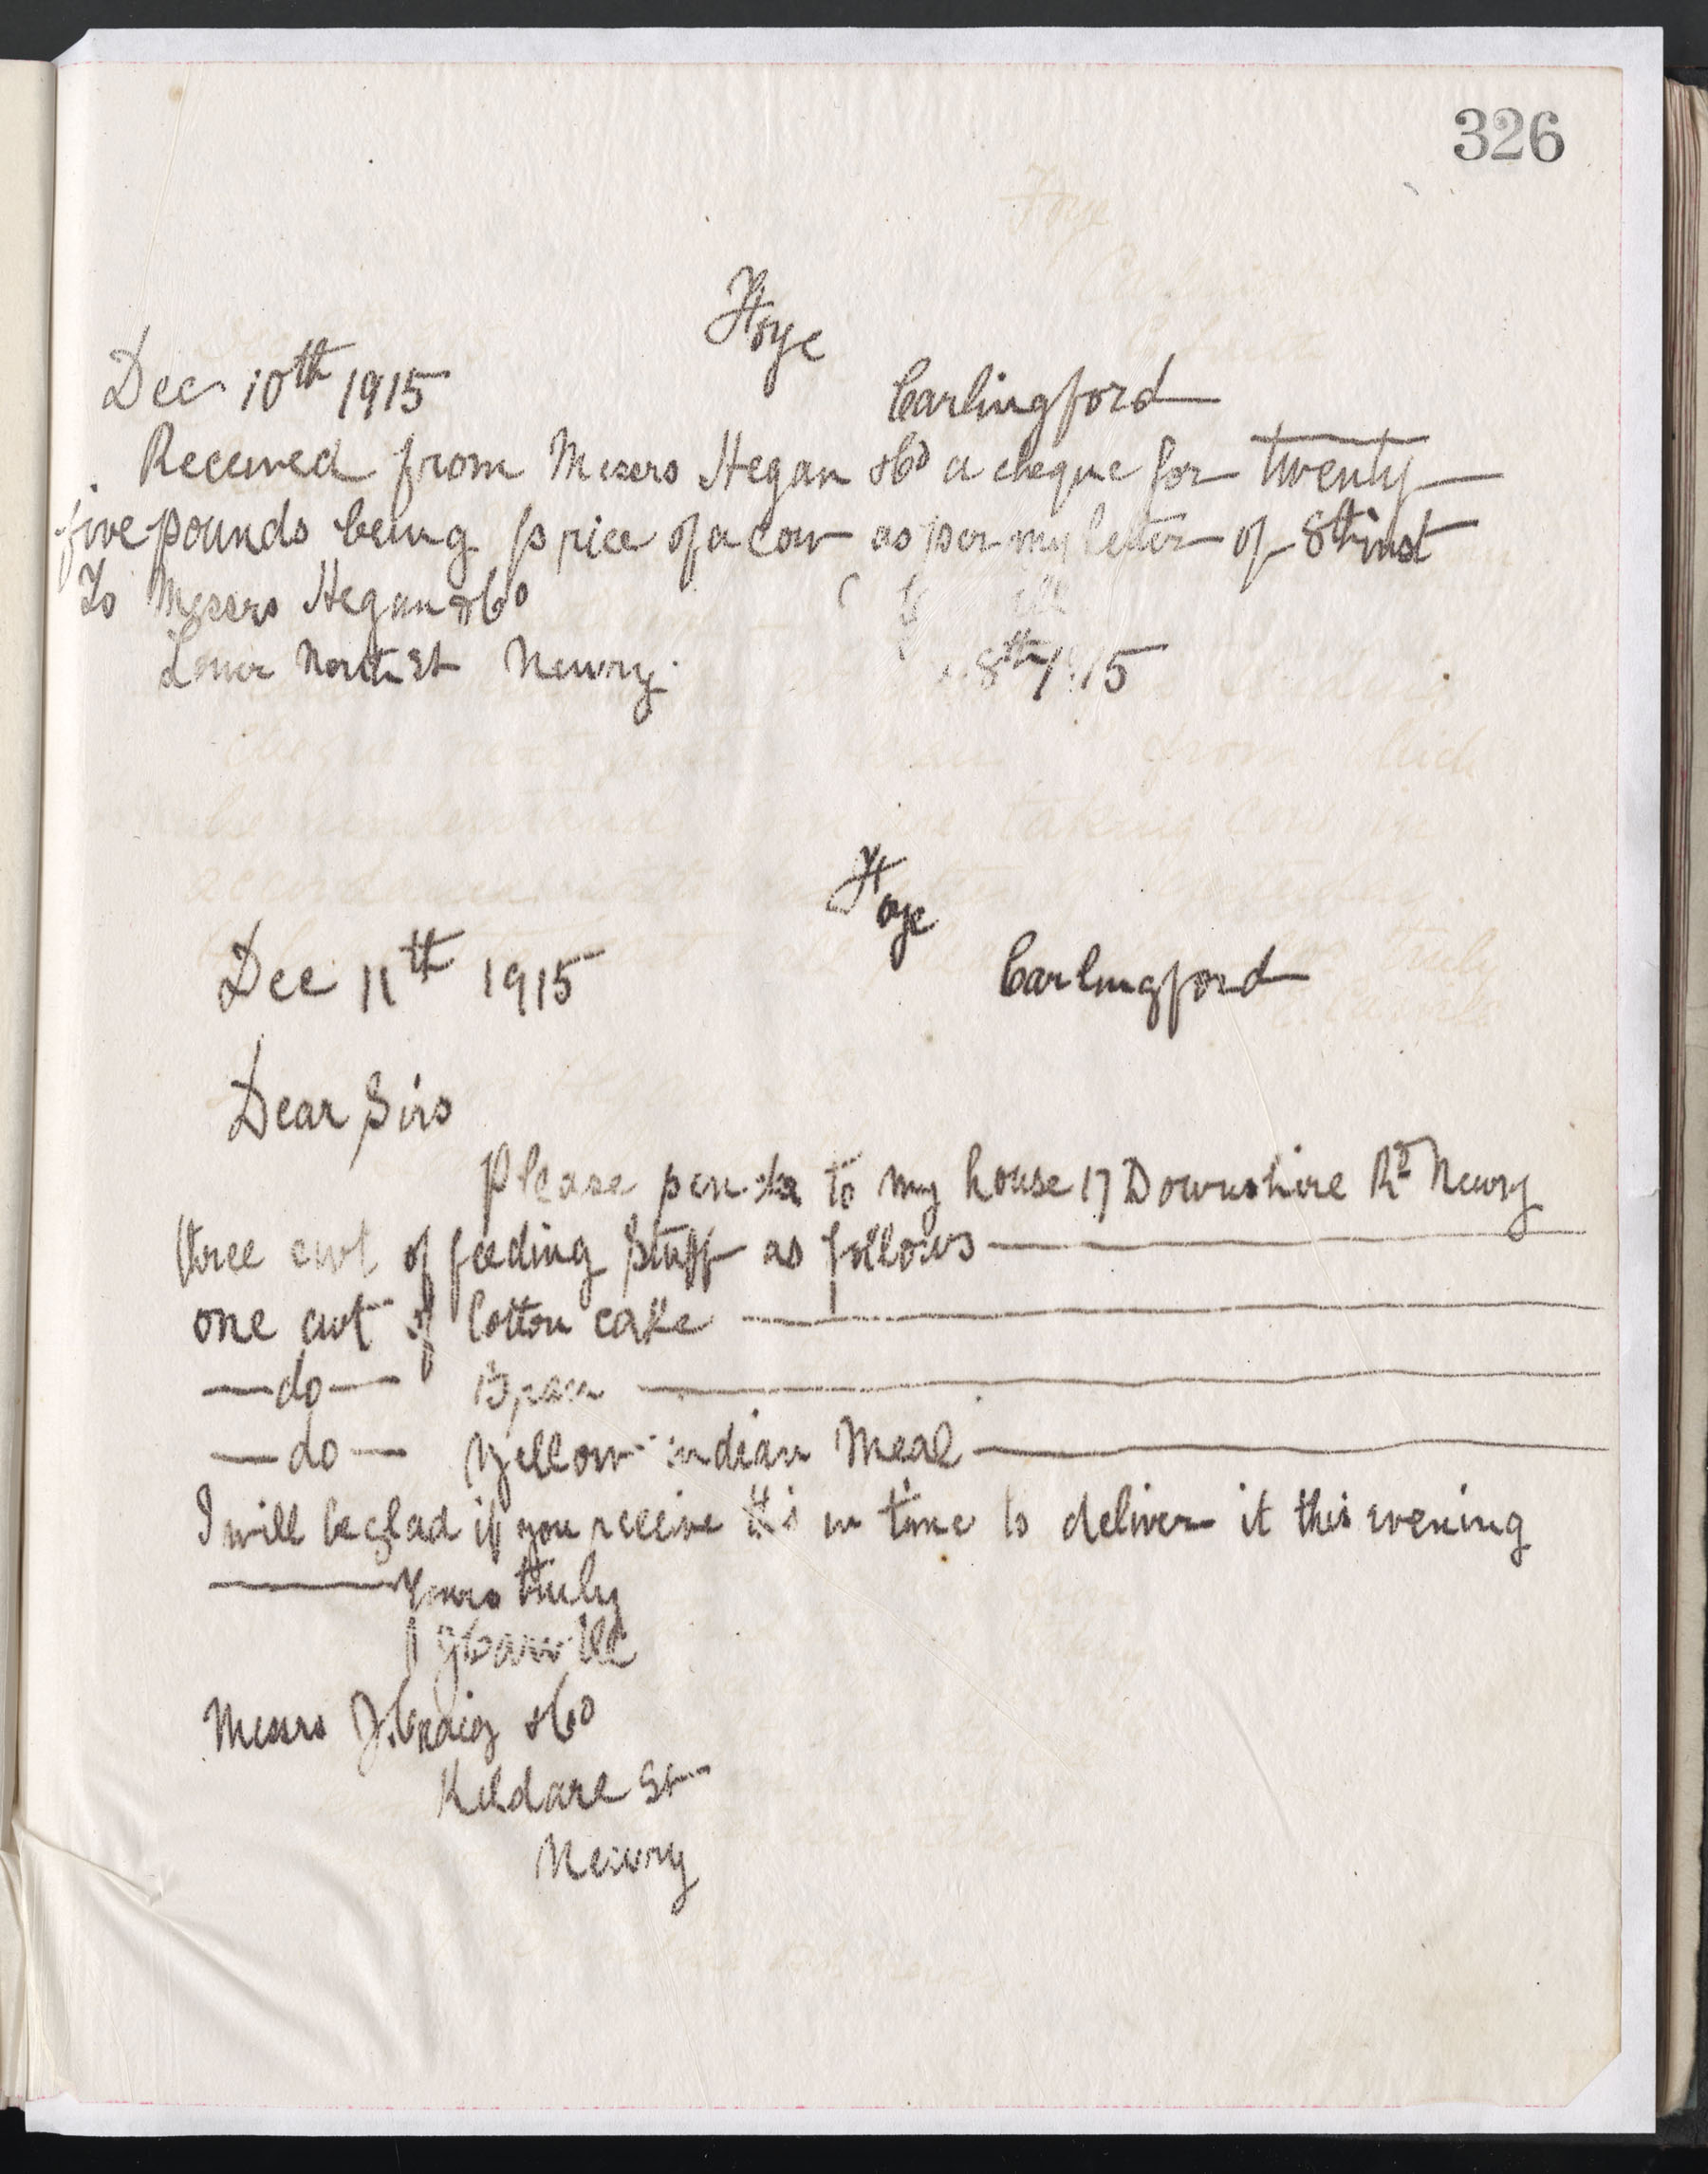 326
Foye
Dec 10th 1915
Carlingford
Received from Messrs Hegan & Co a cheque for twenty
five pounds being price of a cow as per my letter of 8th inst
To Messrs Hegan & Co
Lower North St Newry.
8th/ 15
Foye
Dec 11th 1915
Carlingford
Dear Sirs
Please send to my house 17 Downshire Rd Newry
three cwt of feeding stuff as follows
one cwt of Cotton cake
—do— Bran
—do— Yellow indian Meal
I will be glad if you receive this in time to deliver it this evening
Yours truly
Carville
Messrs J. Craig & Co
Kildare St
Newry